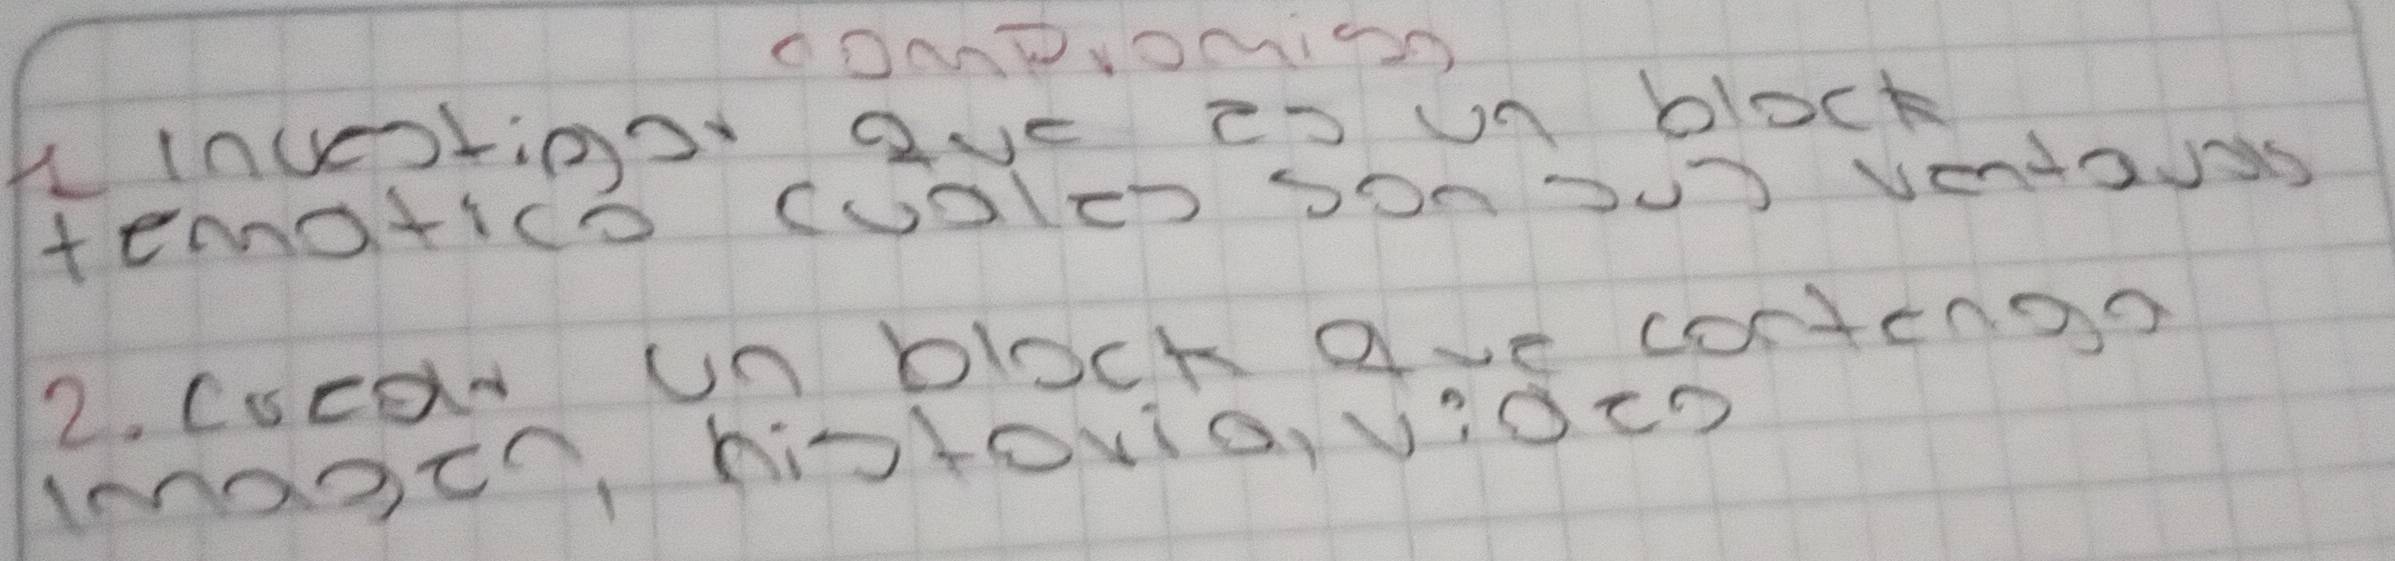 compromiso
1 investigar que es un block
tematico cuales son sus ventajas
2. crear un block que contenga
imagen, historia, video